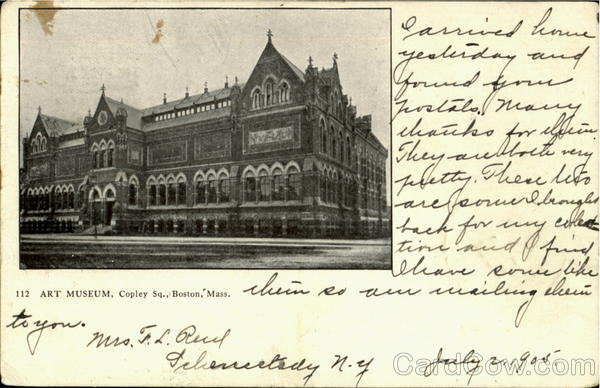 I arrived home
yesterday and
found your
postals. Many
thanks for them.
They are both very
pretty. These two
are some I brought
back for my collec-
tion and find
I have some like
112 ART MUSEUM, Copley Sq., Boston, Mass.
them so am mailing them
to you.
Mrs. F. L. Reed
Schenectady N-Y
July 2, 905
CardCow.com